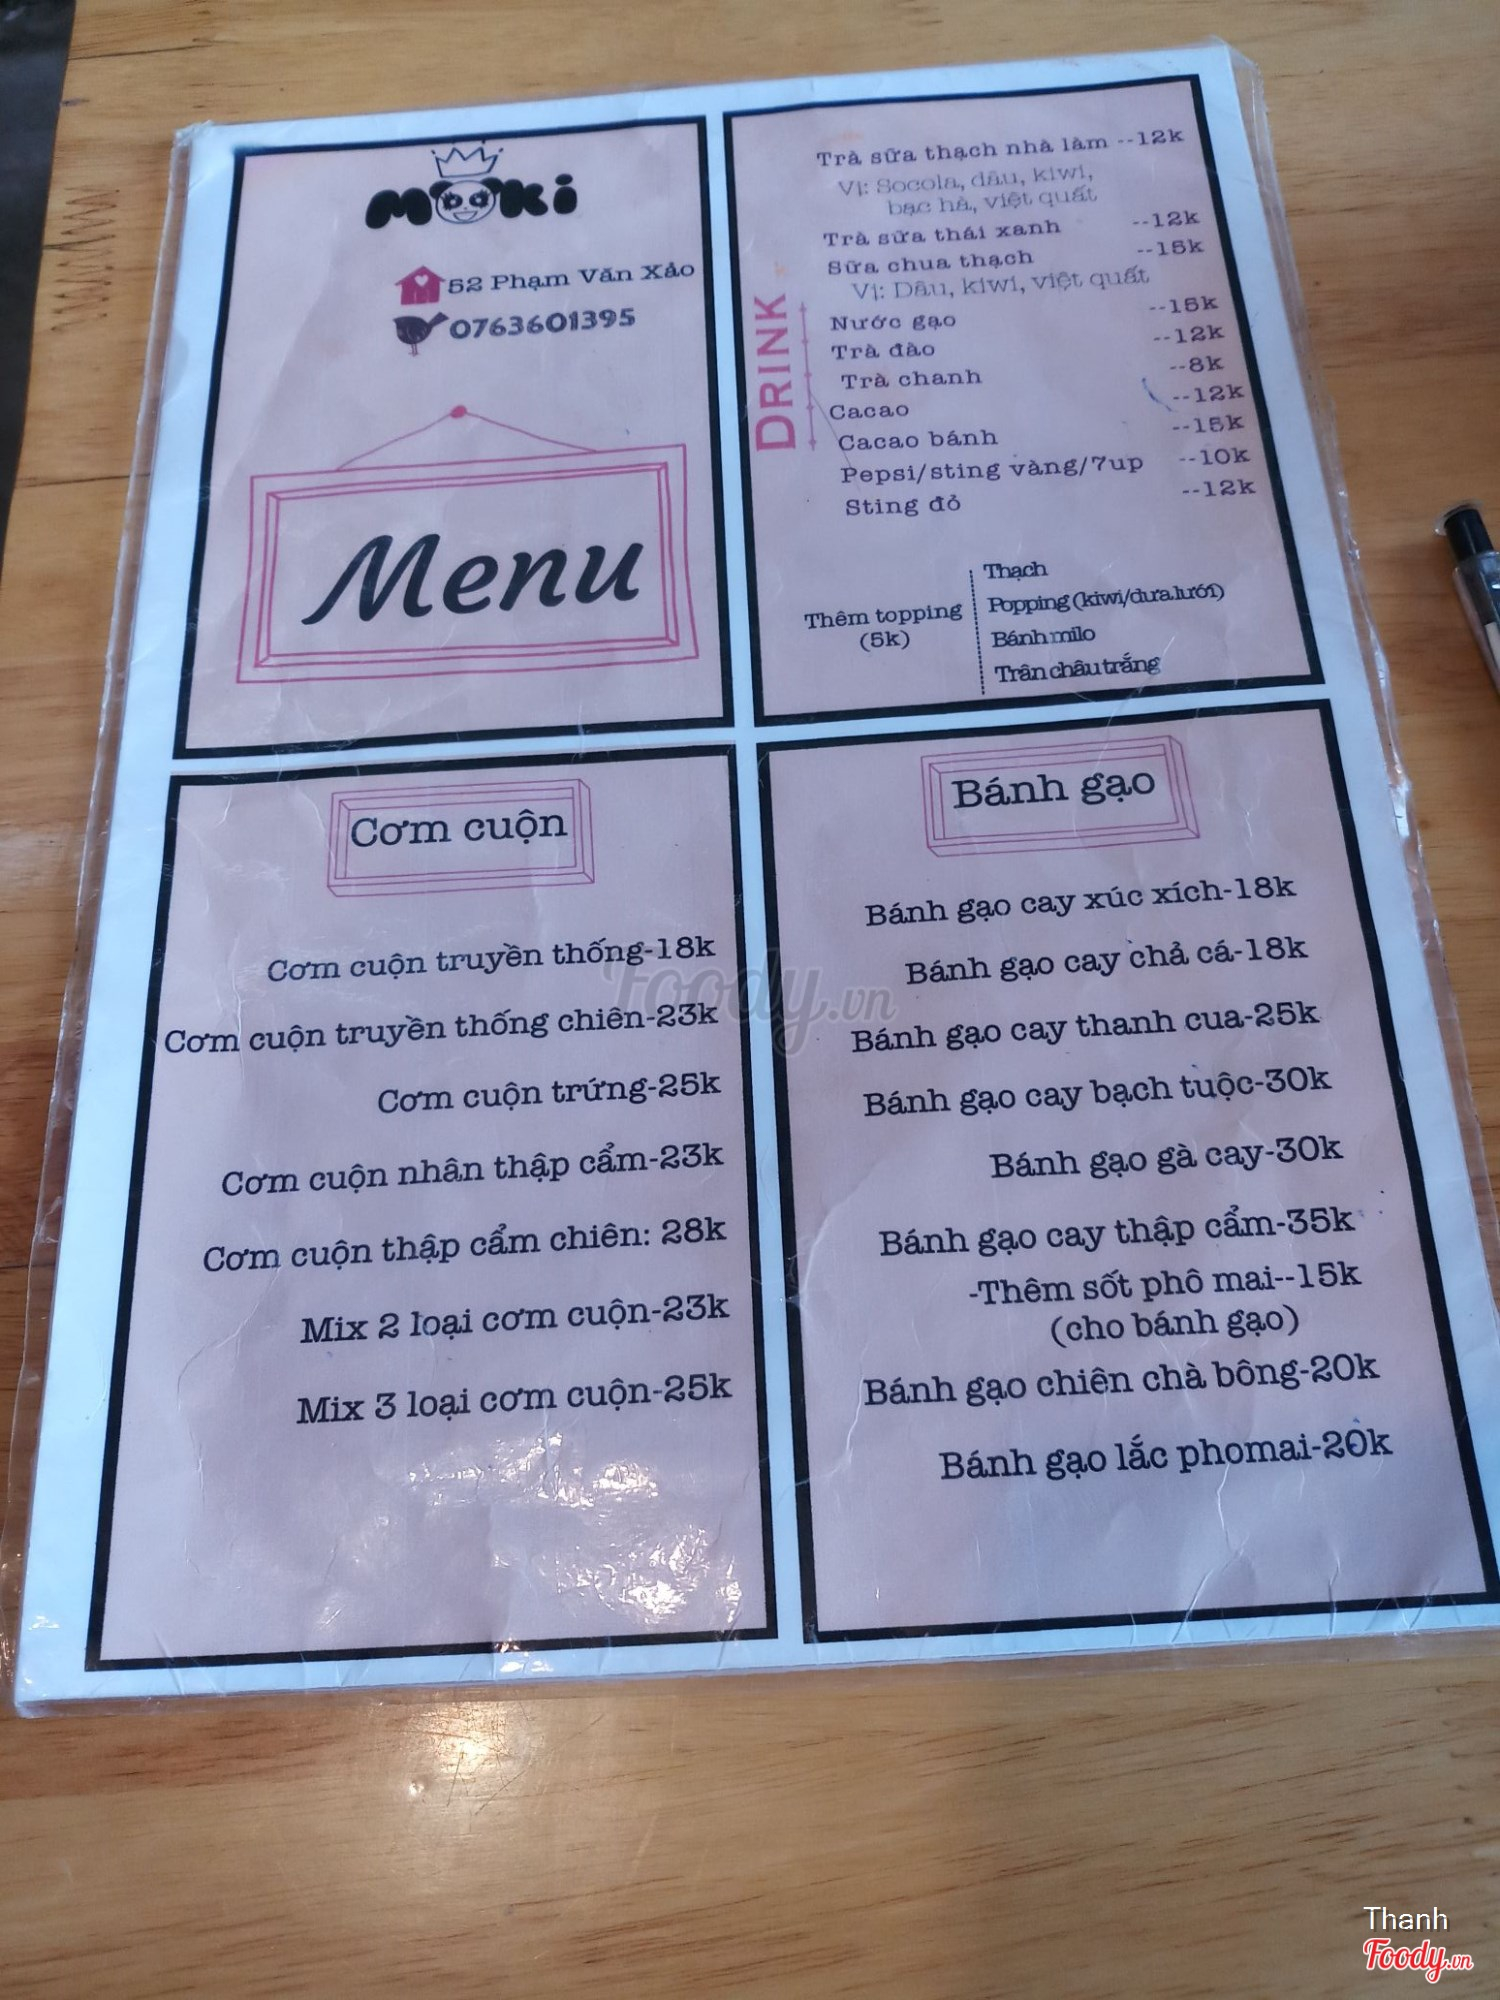 Mooki
52 Phạm Văn Xảo
0763601395
Menu
DRINK
Trà sữa thạch nhà làm --12k
Vị: Socola, dâu, kiwi,
bạc hà, việt quất
Trà sữa thái xanh --12k
Sữa chua thạch --15k
Vị: Dâu, kiwi, việt quất
Nước gạo --15k
Trà đào --12k
Trà chanh --8k
Cacao --12k
Cacao bánh --15k
Pepsi/sting vàng/7up --10k
Sting đỏ --12k
Thêm topping
(5k)
Thạch
Popping (kiwi/dưa lưới)
Bánh milo
Trân châu trắng
Cơm cuộn
Cơm cuộn truyền thống-18k
Cơm cuộn truyền thống chiên-23k
Cơm cuộn trứng-25k
Cơm cuộn nhân thập cẩm-23k
Cơm cuộn thập cẩm chiên: 28k
Mix 2 loại cơm cuộn-23k
Mix 3 loại cơm cuộn-25k
Bánh gạo
Bánh gạo cay xúc xích-18k
Bánh gạo cay chả cá-18k
Bánh gạo cay thanh cua-25k
Bánh gạo cay bạch tuộc-30k
Bánh gạo gà cay-30k
Bánh gạo cay thập cẩm-35k
-Thêm sốt phô mai--15k
(cho bánh gạo)
Bánh gạo chiên chà bông-20k
Bánh gạo lắc phomai-20k
Foody.vn
Thanh
Foody.vn